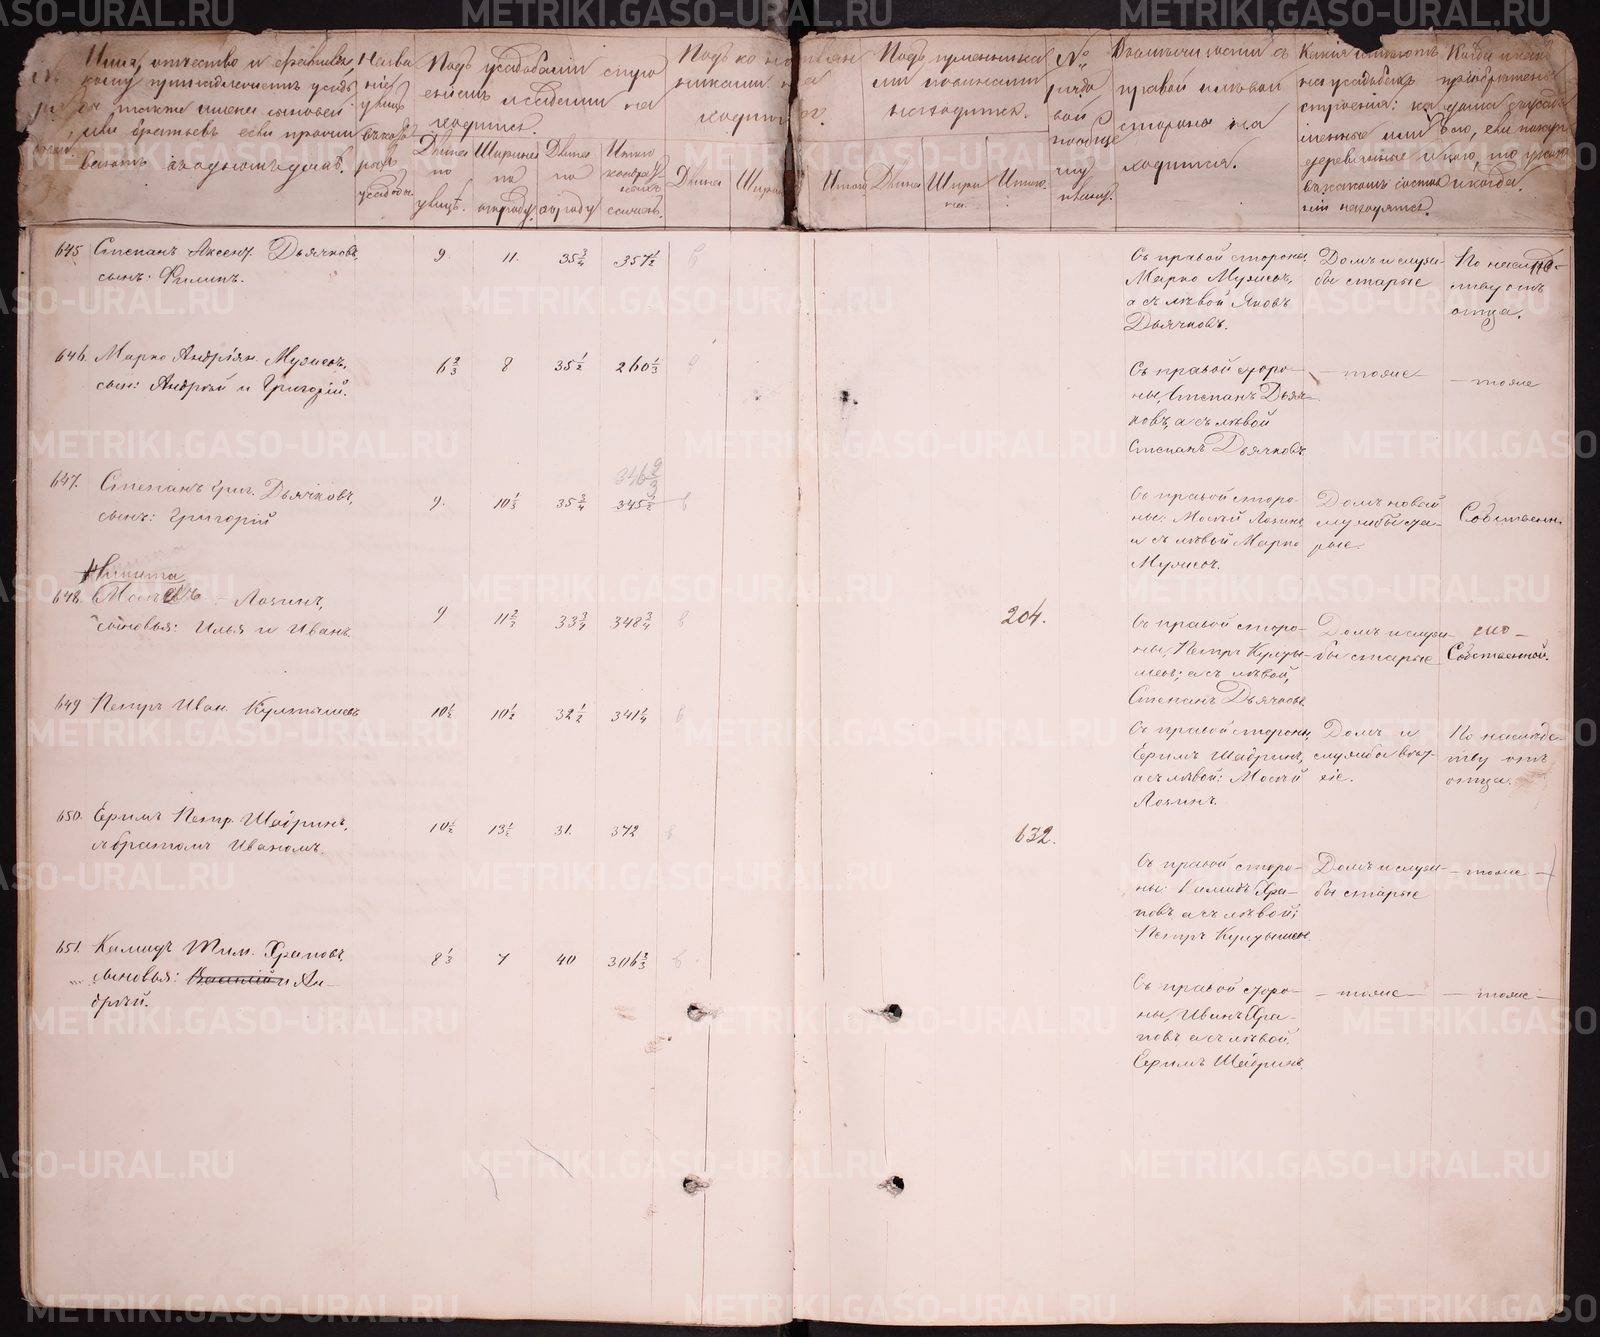 Имя, отчество и фамилия
кому принадлежитъ усадь
ба также имена сыновей
или братьевъ если прожи
ваютъ въ одномъ домѣ.
Назва
ніе
улицъ
усадьбы.
Подъ усадебнымъ стро
еніемъ и садами на
ходится.
Длина
по
улицѣ.
Ширина
по
огороду.
Длина
по
огороду
Итого
квадрат-
ныхъ
сажень.
Подъ ко но
никами
ходит
Длина
Ширин
Подъ гуменника
ми
находится.
Итого
Длина
Шири
на
Итого
№
рядо
вой
сторонѣ на
ходится.
правой и лѣвой
Какія имѣютъ
на усадьбахъ
строенія: ка
менные или
деревянные и
въ какомъ состоя
ніи находятся.
и когда.
645 Степанъ Аксен. Дьячковъ,
сынъ: Филипъ.
9. 11. 35 3/4 357 1/2
Съ правой стороны,
Марко Музисъ,
а съ лѣвой Яковъ
Дьячковъ.
Домъ и служ-
бы старые
По наслѣд-
ству отъ
отца.
646. Марко Андріян. Музисъ,
сын: Андрей и Григорій.
6 2/3 8 35 1/2 260 1/3
Съ правой сторо-
ны, Степанъ Дьяч-
ковъ, а съ лѣвой
Степанъ Дьячковъ
— тоже
— тоже
647. Степанъ Григ. Дьячковъ,
сынъ: Григорій
9. 10 1/3 35 3/4 346 2/3
345 1/2
Съ правой сторо-
ны: Мосѣй Лозинъ
а съ лѣвой Марко
Музисъ.
Домъ новой
службы ста-
рые.
Собственн.
Никита
648. Мосѣевъ — Лозинъ,
сыновья: Илья и Иванъ.
9 11 2/3 33 3/4 348 3/4
204.
Съ правой сторо-
ны, Петръ Култы-
шевъ; а съ лѣвой,
Степанъ Дьячковъ.
Домъ и служ-
бы старые
Собственной.
649 Петръ Иван. Култышевъ
10 1/2 10 1/2 32 1/2 341 1/4
Съ правой стороны,
Ефимъ Шадринъ,
а съ лѣвой: Мосѣй
Лозинъ.
Домъ и
службы вет-
хіе.
По наслѣдс-
тву отъ
отца.
650. Ефимъ Петр. Шадринъ,
съ братомъ Иваномъ.
10 1/2 13 1/2 31. 372
632.
Съ правой сторо-
ны: Калидъ Хра-
повъ а съ лѣвой;
Петръ Култышевъ
Домъ и служ-
бы старые
— тоже —
651. Калидъ Тим. Храповъ,
сыновья: Василій и Ан-
дрей.
8 1/3 7 40 306 2/3
Съ правой сторо-
ны, Иванъ Хра-
повъ а съ лѣвой,
Ефимъ Шадринъ
— тоже —
— тоже —
METRIKI.GASO-URAL.RU